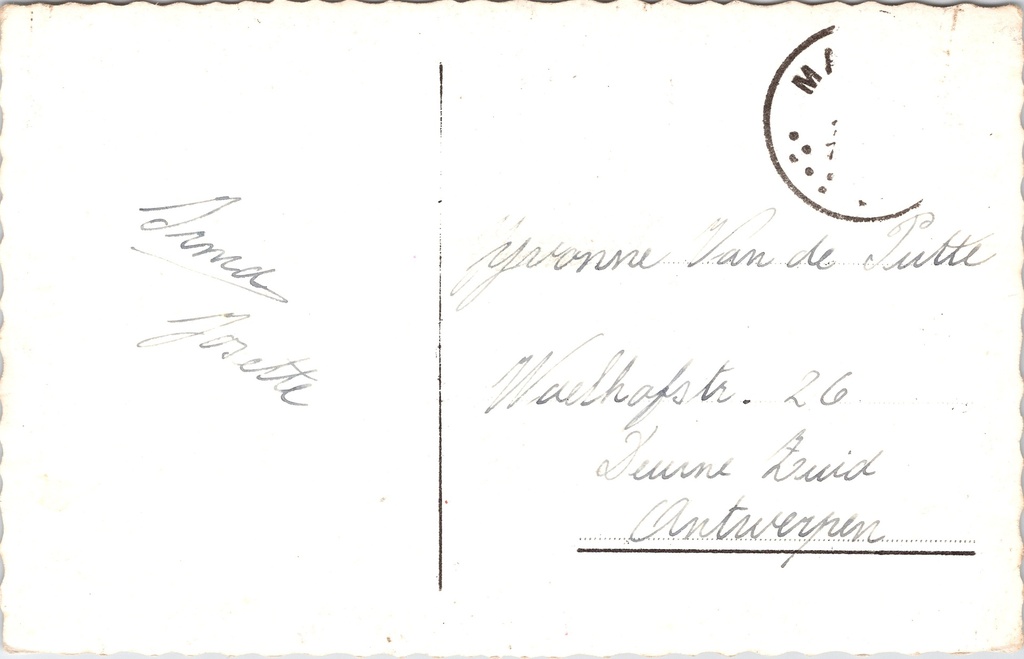 Irma
Josette
M
Yvonne Van de Putte
Waelhofstr. 26
Deurne Zuid
Antwerpen